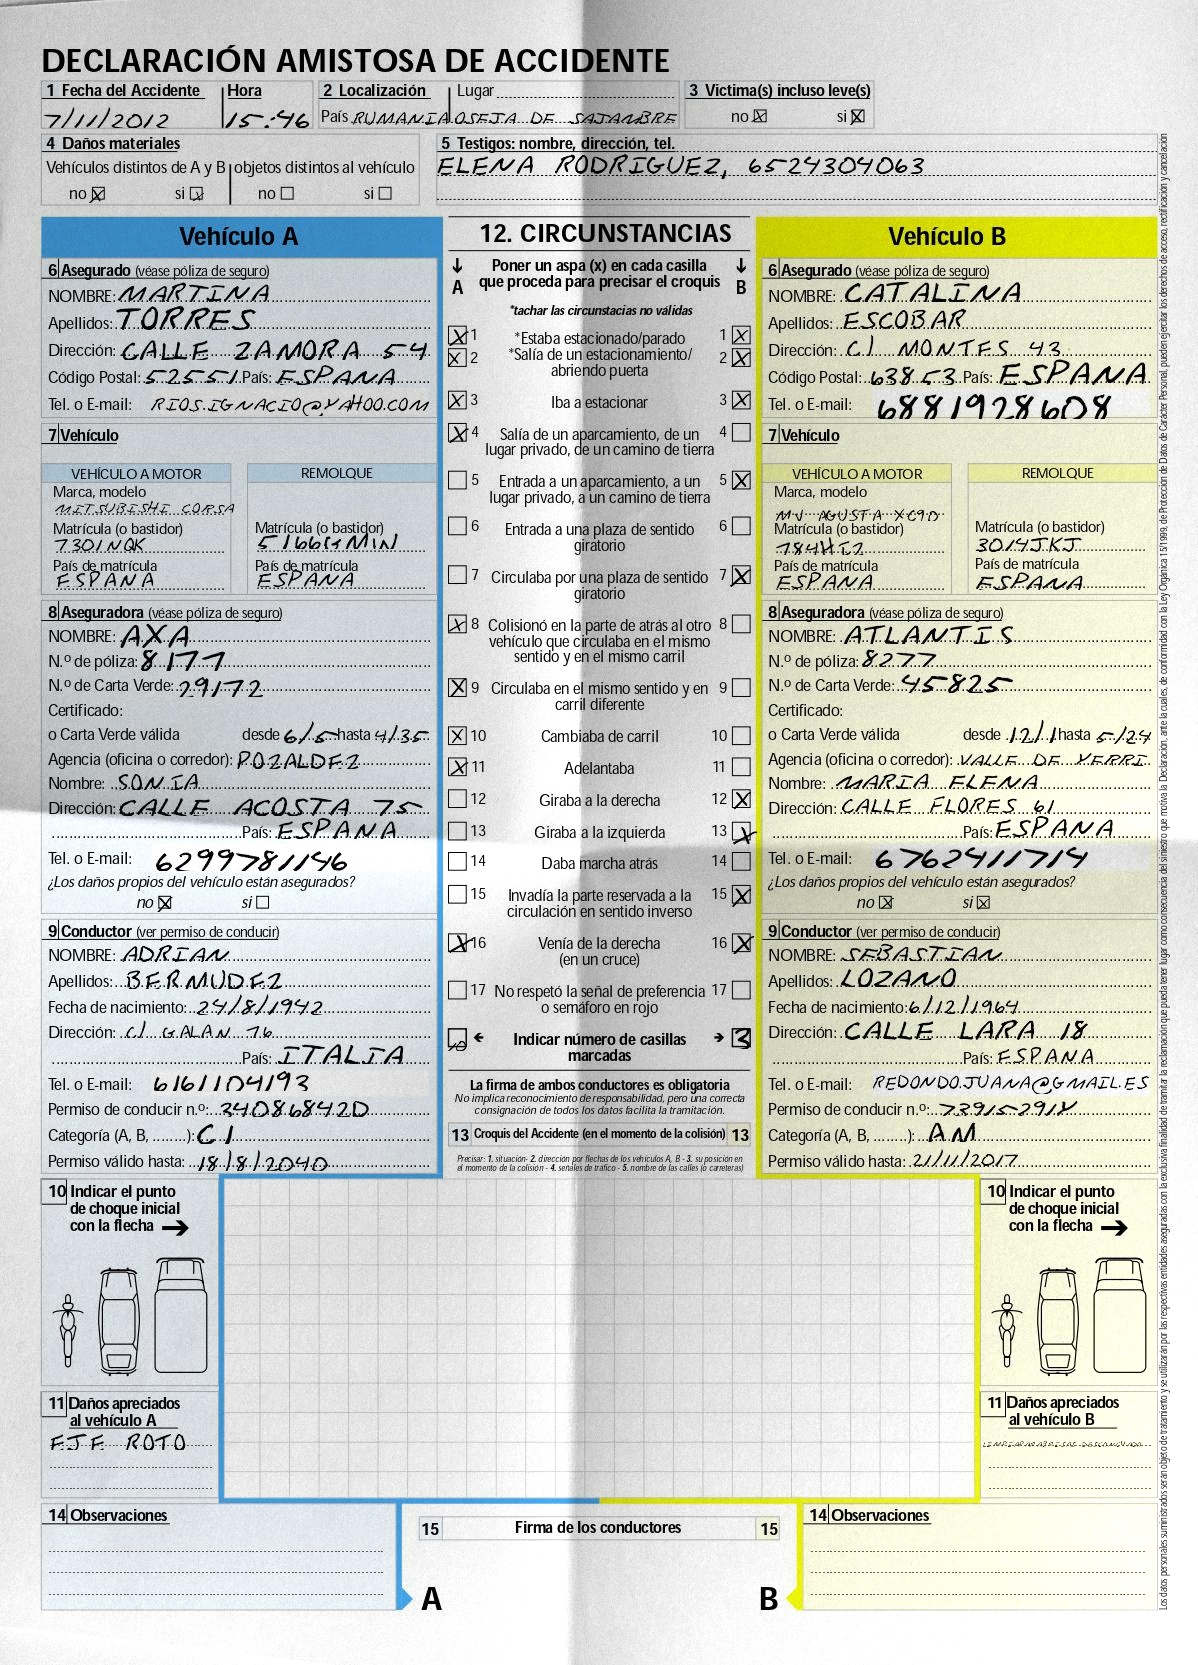 DECLARACIÓN AMISTOSA DE ACCIDENTE
1 Fecha del Accidente Hora
7/11/2012 15:46
2 Localización Lugar
País RUMANIA OSEJA DE SAJAMBRE
3 Victima(s) incluso leve(s)
no si
4 Daños materiales
Vehículos distintos de A y B objetos distintos al vehículo
no si no si
5 Testigos: nombre, dirección, tel.
ELENA RODRIGUEZ, 6524304063
Vehículo A
6 Asegurado (véase póliza de seguro)
NOMBRE: MARTINA
Apellidos: TORRES
Dirección: CALLE ZAMORA 54
Código Postal: 52551 País: ESPANA
Tel. o E-mail: RIOS.IGNACIO@YAHOO.COM
7 Vehículo
VEHÍCULO A MOTOR REMOLQUE
Marca, modelo
MITSUBISHI CORSA
Matrícula (o bastidor) Matrícula (o bastidor)
7301NQK 5166GMIN
País de matrícula País de matrícula
ESPANA ESPANA
8 Aseguradora (véase póliza de seguro)
NOMBRE: AXA
N.º de póliza: 8177
N.º de Carta Verde: 29172
Certificado:
o Carta Verde válida desde 6/5 hasta 4/35
Agencia (oficina o corredor): POZALDEZ
Nombre: SONIA
Dirección: CALLE ACOSTA 75
País: ESPANA
Tel. o E-mail: 6299781146
¿Los daños propios del vehículo están asegurados?
no si
9 Conductor (ver permiso de conducir)
NOMBRE: ADRIAN
Apellidos: BERMUDEZ
Fecha de nacimiento: 24/8/1942
Dirección: C/ GALAN 76
País: ITALIA
Tel. o E-mail: 6161104193
Permiso de conducir n.º: 34086842D
Categoría (A, B, ........): C1
Permiso válido hasta: 18/8/2040
12. CIRCUNSTANCIAS
A Poner un aspa (x) en cada casilla que proceda para precisar el croquis B
*tachar las circunstacias no válidas
1 *Estaba estacionado/parado 1
2 *Salía de un estacionamiento/ 2
abriendo puerta
3 Iba a estacionar 3
4 Salía de un aparcamiento, de un 4
lugar privado, de un camino de tierra
5 Entrada a un aparcamiento, a un 5
lugar privado, a un camino de tierra
6 Entrada a una plaza de sentido 6
giratorio
7 Circulaba por una plaza de sentido 7
giratorio
8 Colisionó en la parte de atrás al otro 8
vehículo que circulaba en el mismo
sentido y en el mismo carril
9 Circulaba en el mismo sentido y en 9
carril diferente
10 Cambiaba de carril 10
11 Adelantaba 11
12 Giraba a la derecha 12
13 Giraba a la izquierda 13
14 Daba marcha atrás 14
15 Invadía la parte reservada a la 15
circulación en sentido inverso
16 Venía de la derecha 16
(en un cruce)
17 No respetó la señal de preferencia 17
o semáforo en rojo
10 Indicar número de casillas 3
marcadas
La firma de ambos conductores es obligatoria
No implica reconocimiento de responsabilidad, pero una correcta
consignación de todos los datos facilita la tramitación.
13 Croquis del Accidente (en el momento de la colisión) 13
Precisar: 1. situación- 2. dirección por flechas de los vehículos A, B - 3. su posición en
el momento de la colisión - 4. señales de tráfico - 5. nombre de las calles (o carreteras)
Vehículo B
6 Asegurado (véase póliza de seguro)
NOMBRE: CATALINA
Apellidos: ESCOBAR
Dirección: C/ MONTES 43
Código Postal: 63853 País: ESPANA
Tel. o E-mail: 6881928608
7 Vehículo
VEHÍCULO A MOTOR REMOLQUE
Marca, modelo
MV AGUSTA XC90
Matrícula (o bastidor) Matrícula (o bastidor)
784HIZ 3014JKJ
País de matrícula País de matrícula
ESPANA ESPANA
8 Aseguradora (véase póliza de seguro)
NOMBRE: ATLANTIS
N.º de póliza: 8277
N.º de Carta Verde: 45825
Certificado:
o Carta Verde válida desde 12/1 hasta 5/24
Agencia (oficina o corredor): VALLE DE YERRI
Nombre: MARIA ELENA
Dirección: CALLE FLORES 61
País: ESPANA
Tel. o E-mail: 6762411714
¿Los daños propios del vehículo están asegurados?
no si
9 Conductor (ver permiso de conducir)
NOMBRE: SEBASTIAN
Apellidos: LOZANO
Fecha de nacimiento: 6/12/1964
Dirección: CALLE LARA 18
País: ESPANA
Tel. o E-mail: REDONDOJUANA@GMAIL.ES
Permiso de conducir n.º: 73915291X
Categoría (A, B, ........): AM
Permiso válido hasta: 21/11/2017
10 Indicar el punto
de choque inicial
con la flecha
11 Daños apreciados
al vehículo A
EJE ROTO
10 Indicar el punto
de choque inicial
con la flecha
11 Daños apreciados
al vehículo B
LIMPIAPARABRISAS DESCONCHADO
14 Observaciones
15 Firma de los conductores 15
A B
14 Observaciones
Los datos personales suministrados seran objeto de tratamiento y se utilizaran por las respectivas entidades aseguradas con la exclusiva finalidad de tramitar la reclamación que pueda tener lugar como consecuencia del siniestro que motiva la Declaración, ante la cuales, de conformidad con la Ley Organica 15/1999, de Protección de Datos de Carácter Personal, pueden ejercitar los derechos de acceso, rectificación y cancelación